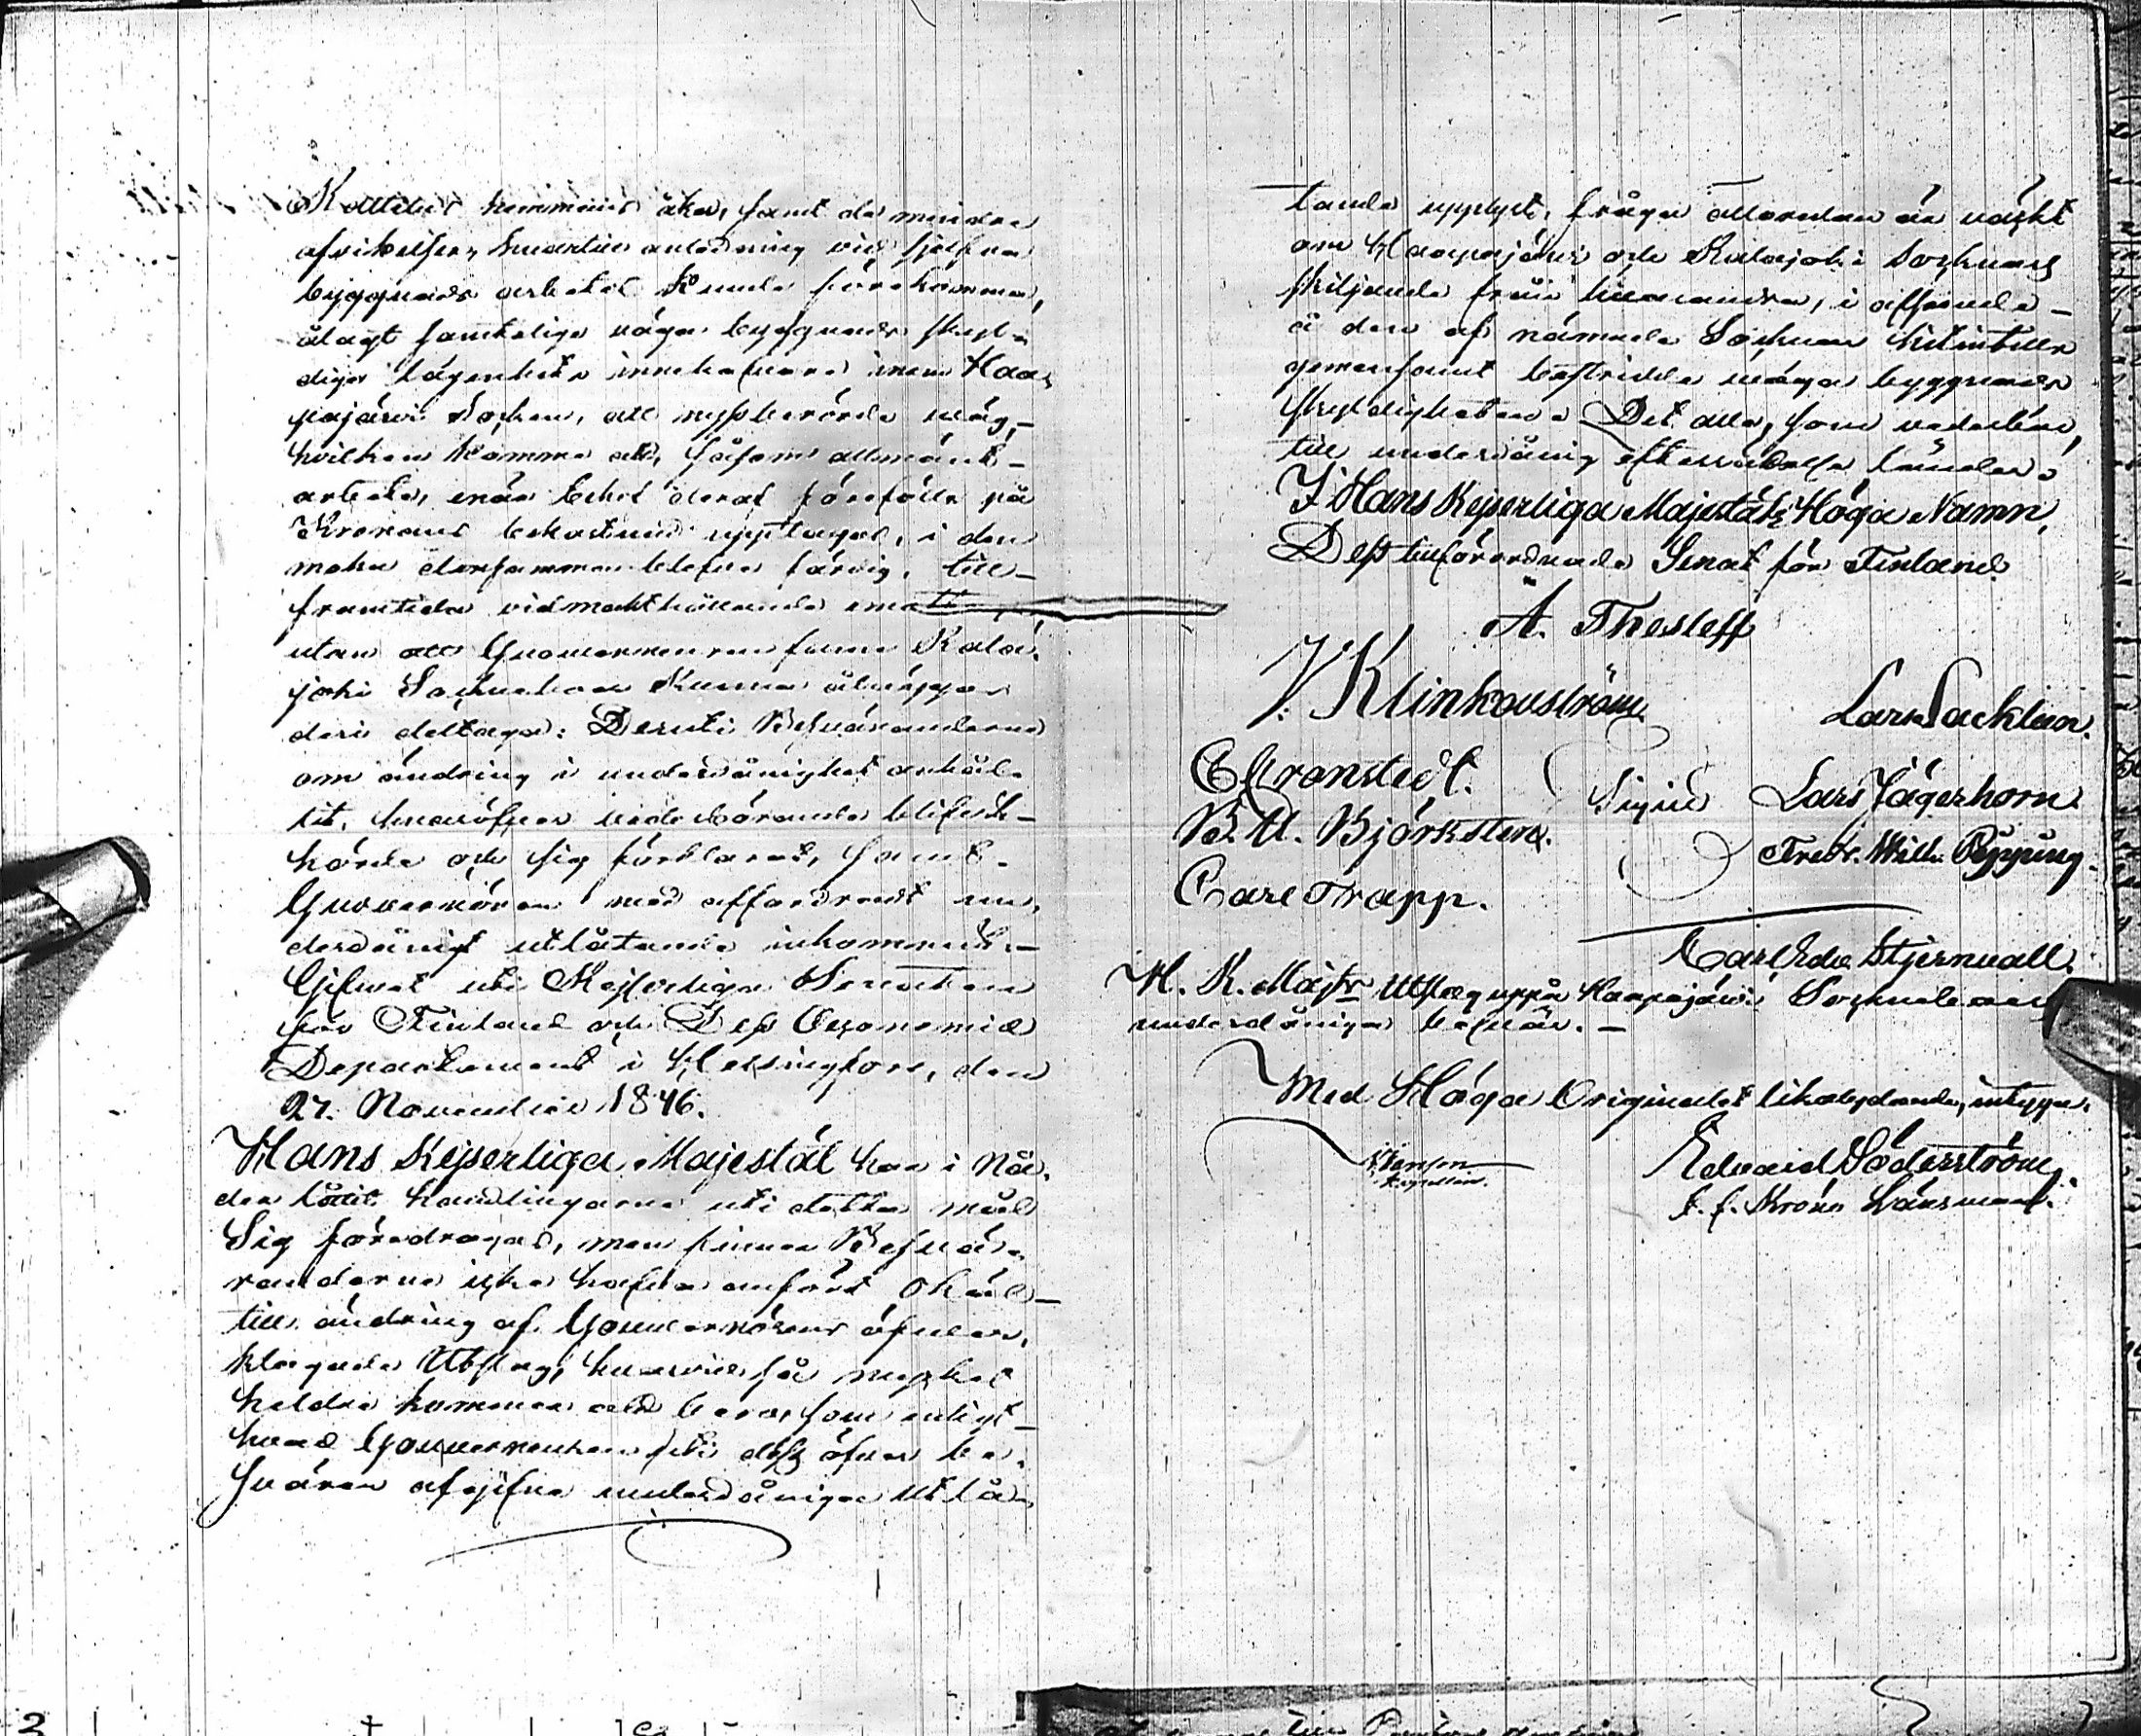 Kattilus hemmans åker, samt de mindre
afvikelser, hvartill anledning vid sjelfva
byggnads arbetet kunde förekomma,
ålagt samtelige väga byggnads skyl-
dige lägenhets innehafvare inom Haa-
pajärvi Socken, att nyssberörde väg,-
hvilken komme att, såsom allmänt-
arbete, enär behof deraf förefölle på
Kronans bekostnad upptagas, i den
mohn densamma blefve färdig, till-
framtida vidmakthållande emot-
utan att Gouverneuren funne Kala-
joki Sockneboar kunna åläggas
deri deltaga: Deruti Besväranderne
om ändring i underdånighet anhål-
lit, hvaröfver vederbörande blifvit-
hörde och sig förklarat, samt-
Guvernören med affordradt un-
derdånigt utlåtande inkommit.-
Gifvet uti Kejserliga Senaten
för Finland och Dess Oeconomie
Departement i Helsingfors, den
27. November 1846.
Hans Kejserliga Majestät har i Nå-
der låtit handlingarne uti detta mål
Sig föredragas, men finner Besvä-
randerne icke hafva anfört skäl-
till ändring af Gouvernörens öfver-
klagade Utslag, hvarvid så mycket
heldre kommer att bero, som enligt-
hvad Gouverneuren uti dess öfver be-
svären afgifne underdåniga utlå-
tande upplyst, fråga allaredan är väckt
om Haapajärvi och Kalajoki Socknars
skiljande från hvarandra, i afseende-
å den af nämnde Socknar hitintills
gemensamt bestridde väga byggnads
skyldigheten. Det alla, som vederbör,
till underdånig efterrättelse länder.
I Hans Kejserliga Majestäts Höga Namn,
Dess tillförordnade Senat för Finland.
A. Thesleff
V. Klinkowström
Lars Sacklen.
C. Cronstedt.
Sigill
Lars Jägerhorn.
B. U. Björksten.
Fredr. Wilh. Pipping.
Carl Trapp.
Carl Edv. Stjernvall.
H. K. Majts Utslag uppå Haapajärvi Sockneboars
underdåniga besvär.-
Med Höga Originalet likalydande, intyga.
Edvard Söderström,
t. f. Krono Länsman.